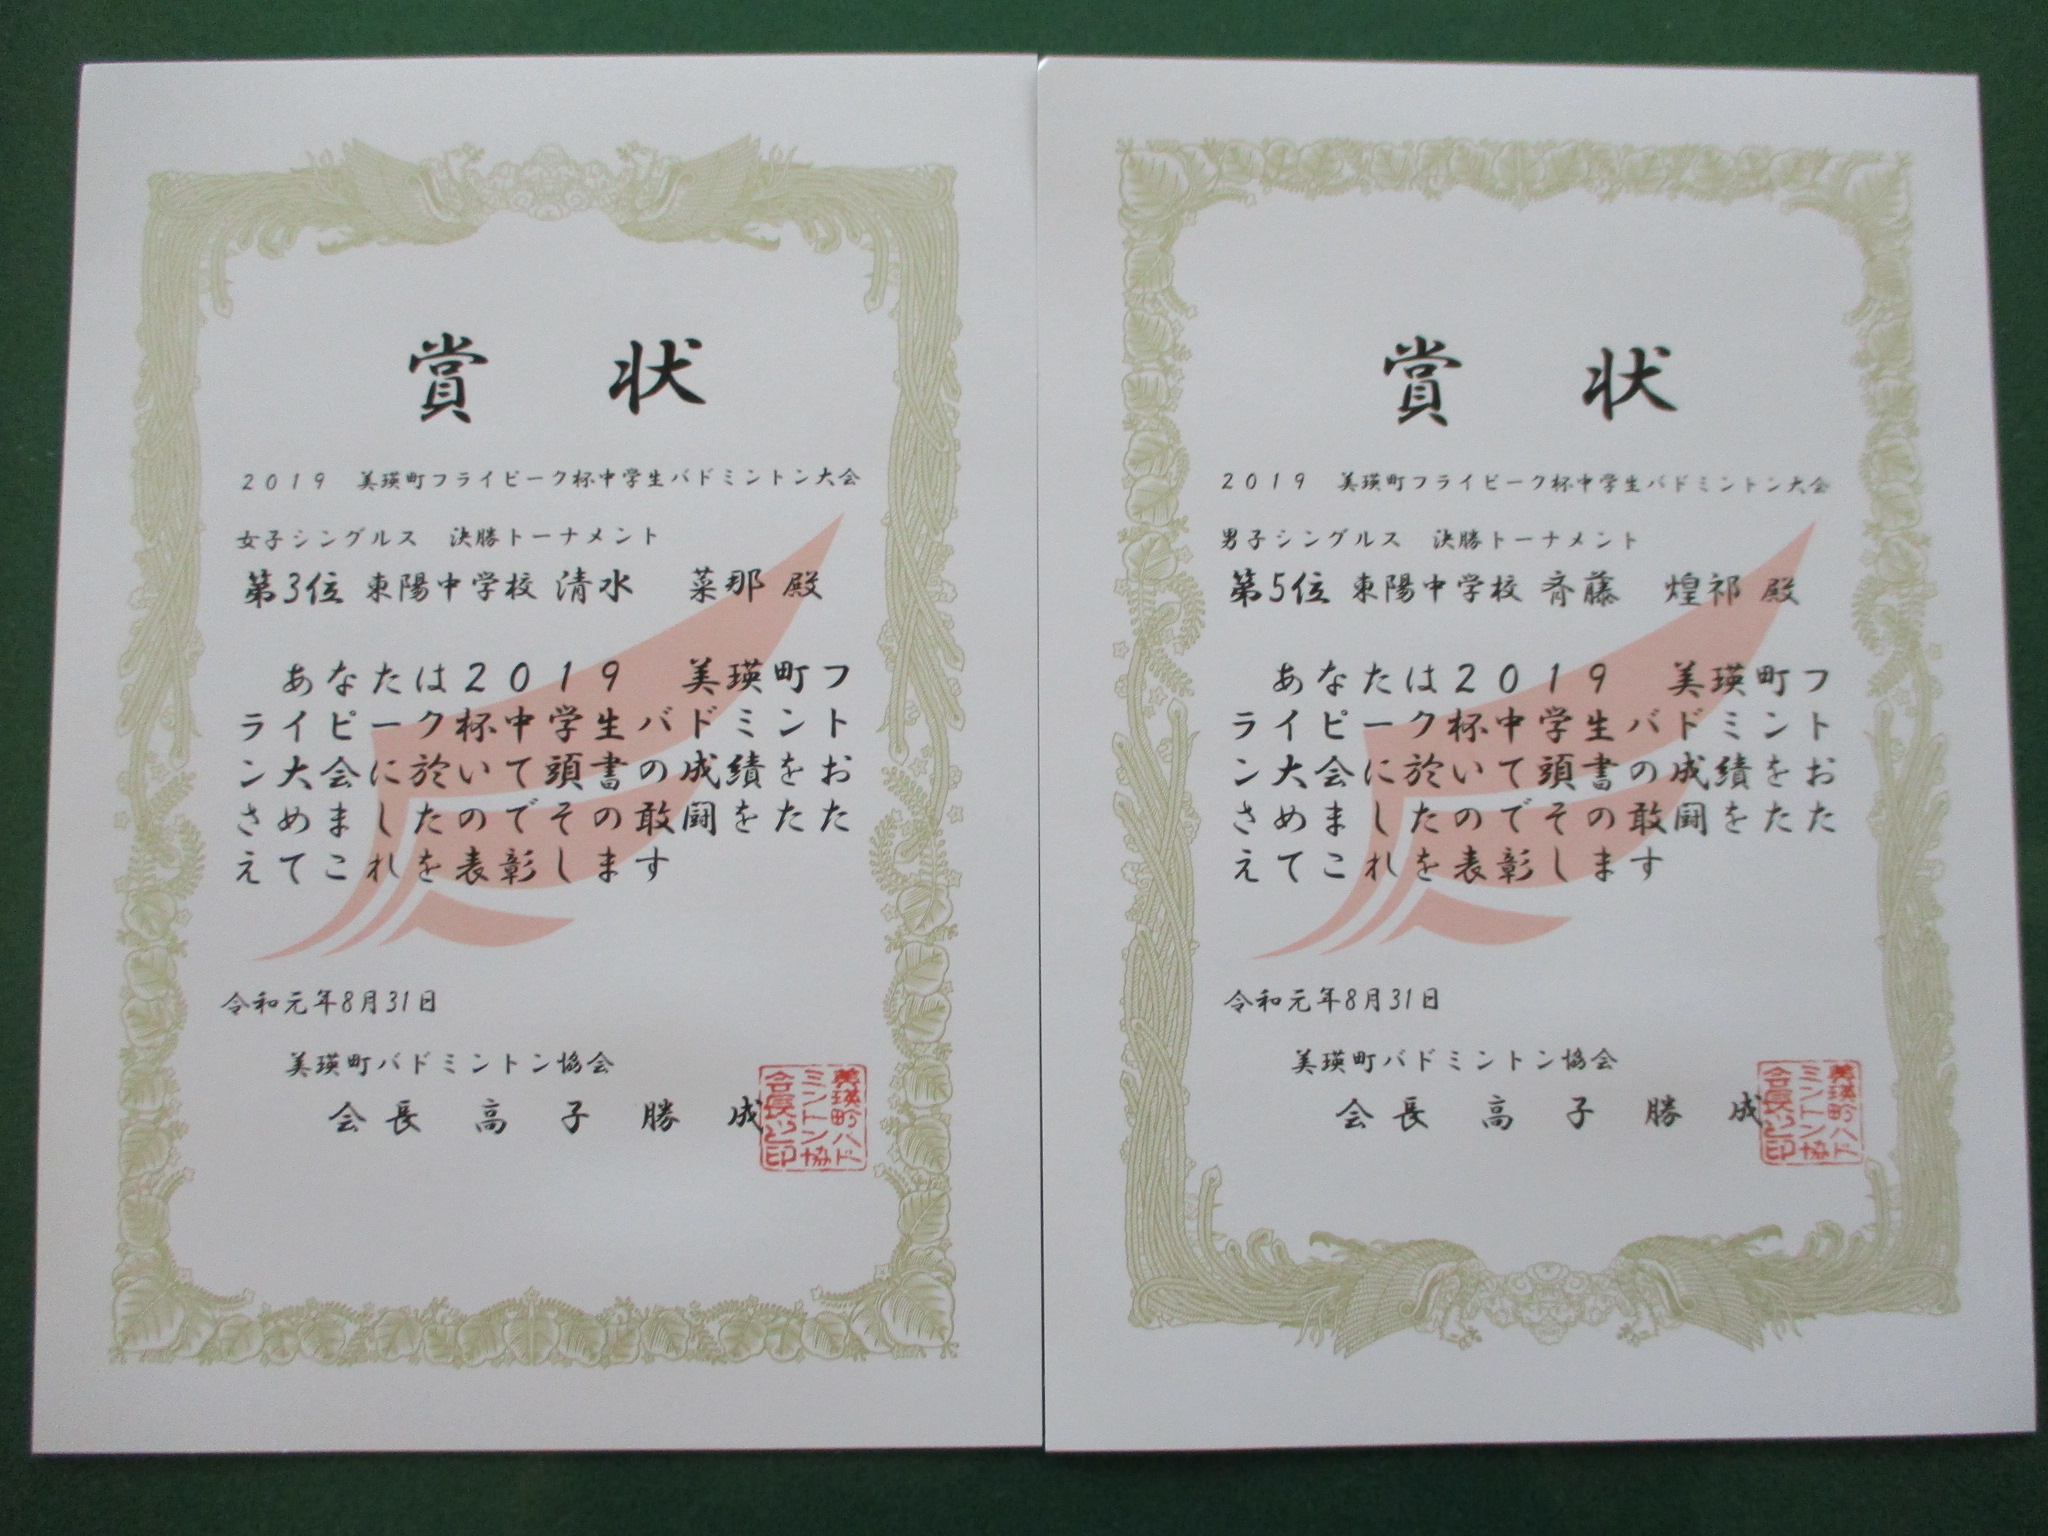 賞 状
2019 美瑛町フライピーク杯中学生バドミントン大会
女子シングルス 決勝トーナメント
第3位 東陽中学校 清水 菜那 殿
あなたは2019 美瑛町フ
ライピーク杯中学生バドミント
ン大会に於いて頭書の成績をお
さめましたのでその敢闘をたた
えてこれを表彰します
令和元年8月31日
美瑛町バドミントン協会
会長 高子勝成
美瑛町バド
ミントン協
会長之印
賞 状
2019 美瑛町フライピーク杯中学生バドミントン大会
男子シングルス 決勝トーナメント
第5位 東陽中学校 斉藤 煌祁 殿
あなたは2019 美瑛町フ
ライピーク杯中学生バドミント
ン大会に於いて頭書の成績をお
さめましたのでその敢闘をたた
えてこれを表彰します
令和元年8月31日
美瑛町バドミントン協会
会長 高子勝成
美瑛町バド
ミントン協
会長之印